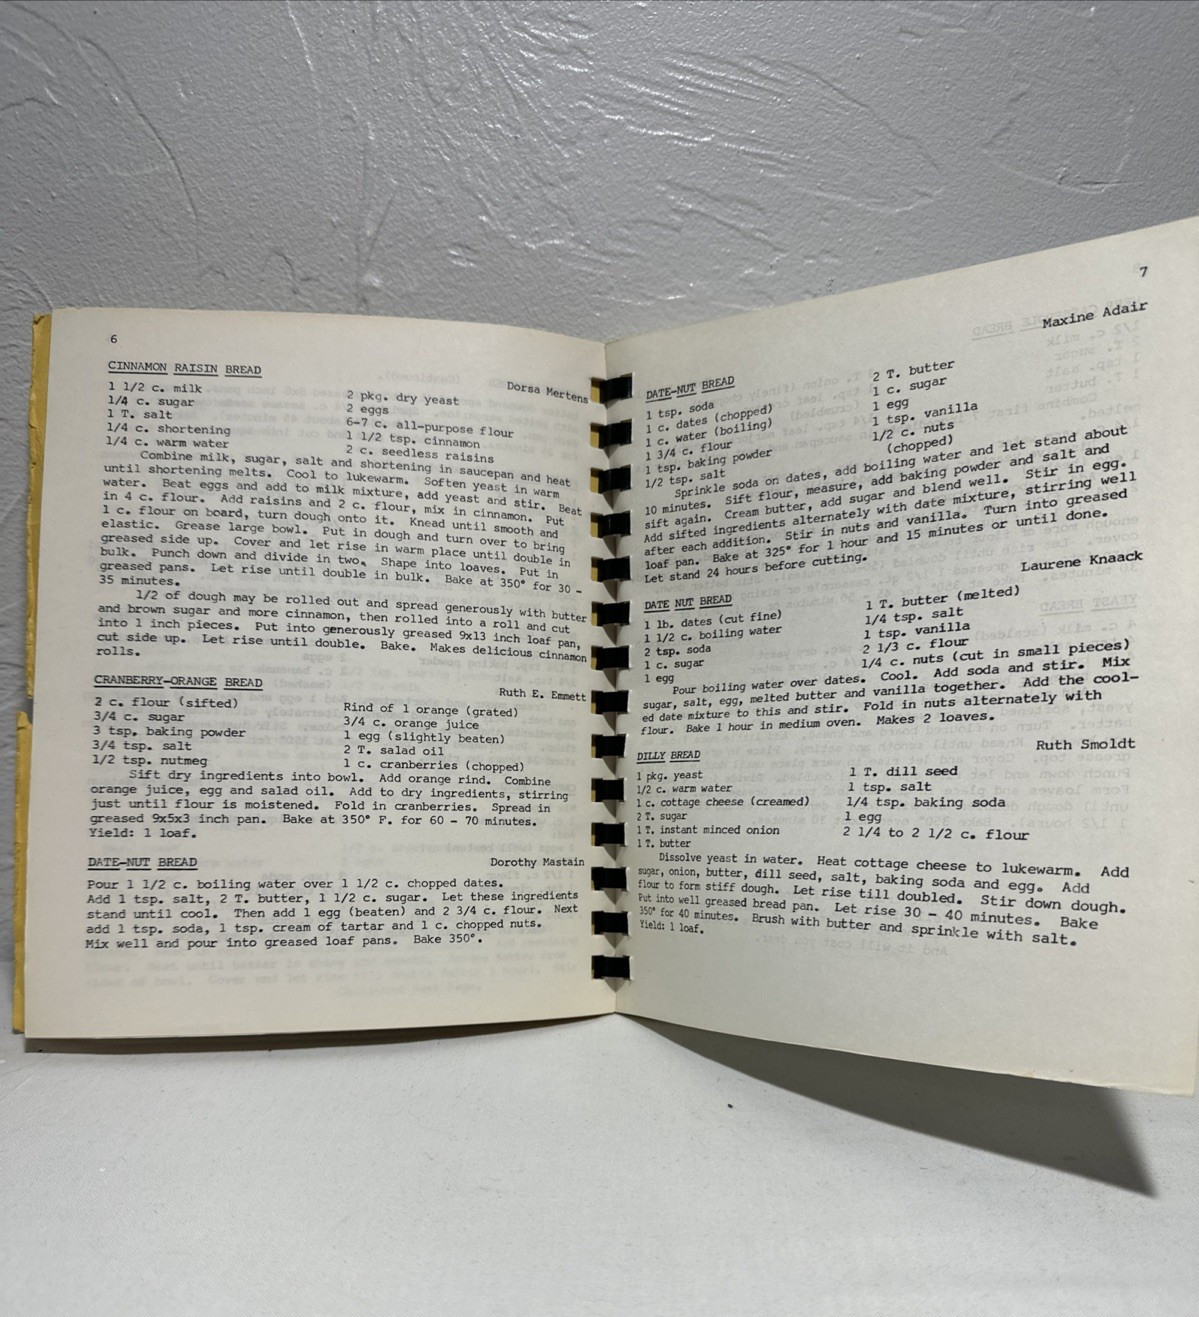 6
CINNAMON RAISIN BREAD
Dorsa Mertens
1 1/2 c. milk
1/4 c. sugar
1 T. salt
1/4 c. shortening
1/4 c. warm water
2 pkg. dry yeast
2 eggs
6-7 c. all-purpose flour
1 1/2 tsp. cinnamon
2 c. seedless raisins
Combine milk, sugar, salt and shortening in saucepan and heat
until shortening melts. Cool to lukewarm. Soften yeast in warm
water. Beat eggs and add to milk mixture, add yeast and stir. Beat
in 4 c. flour. Add raisins and 2 c. flour, mix in cinnamon. Put
1 c. flour on board, turn dough onto it. Knead until smooth and
elastic. Grease large bowl. Put in dough and turn over to bring
greased side up. Cover and let rise in warm place until double in
bulk. Punch down and divide in two. Shape into loaves. Put in
greased pans. Let rise until double in bulk. Bake at 350° for 30 -
35 minutes.
1/2 of dough may be rolled out and spread generously with butter
and brown sugar and more cinnamon, then rolled into a roll and cut
into 1 inch pieces. Put into generously greased 9x13 inch loaf pan,
cut side up. Let rise until double. Bake. Makes delicious cinnamon
rolls.
CRANBERRY-ORANGE BREAD
Ruth E. Emmett
2 c. flour (sifted)
3/4 c. sugar
3 tsp. baking powder
3/4 tsp. salt
1/2 tsp. nutmeg
Rind of 1 orange (grated)
3/4 c. orange juice
1 egg (slightly beaten)
2 T. salad oil
1 c. cranberries (chopped)
Sift dry ingredients into bowl. Add orange rind. Combine
orange juice, egg and salad oil. Add to dry ingredients, stirring
just until flour is moistened. Fold in cranberries. Spread in
greased 9x5x3 inch pan. Bake at 350° F. for 60 - 70 minutes.
Yield: 1 loaf.
DATE-NUT BREAD
Dorothy Mastain
Pour 1 1/2 c. boiling water over 1 1/2 c. chopped dates.
Add 1 tsp. salt, 2 T. butter, 1 1/2 c. sugar. Let these ingredients
stand until cool. Then add 1 egg (beaten) and 2 3/4 c. flour. Next
add 1 tsp. soda, 1 tsp. cream of tartar and 1 c. chopped nuts.
Mix well and pour into greased loaf pans. Bake 350°.
7
Maxine Adair
DATE-NUT BREAD
1 tsp. soda
1 c. dates (chopped)
1 c. water (boiling)
1 3/4 c. flour
1 tsp. baking powder
1/2 tsp. salt
2 T. butter
1 c. sugar
1 egg
1 tsp. vanilla
1/2 c. nuts
(chopped)
Sprinkle soda on dates, add boiling water and let stand about
10 minutes. Sift flour, measure, add baking powder and salt and
sift again. Cream butter, add sugar and blend well. Stir in egg.
Add sifted ingredients alternately with date mixture, stirring well
after each addition. Stir in nuts and vanilla. Turn into greased
loaf pan. Bake at 325° for 1 hour and 15 minutes or until done.
Let stand 24 hours before cutting.
Laurene Knaack
DATE NUT BREAD
1 lb. dates (cut fine)
1 1/2 c. boiling water
2 tsp. soda
1 c. sugar
1 egg
1 T. butter (melted)
1/4 tsp. salt
1 tsp. vanilla
2 1/3 c. flour
1/4 c. nuts (cut in small pieces)
Pour boiling water over dates. Cool. Add soda and stir. Mix
sugar, salt, egg, melted butter and vanilla together. Add the cool-
ed date mixture to this and stir. Fold in nuts alternately with
flour. Bake 1 hour in medium oven. Makes 2 loaves.
Ruth Smoldt
DILLY BREAD
1 pkg. yeast
1/2 c. warm water
1 c. cottage cheese (creamed)
2 T. sugar
1 T. instant minced onion
1 T. butter
1 T. dill seed
1 tsp. salt
1/4 tsp. baking soda
1 egg
2 1/4 to 2 1/2 c. flour
Dissolve yeast in water. Heat cottage cheese to lukewarm. Add
sugar, onion, butter, dill seed, salt, baking soda and egg. Add
flour to form stiff dough. Let rise till doubled. Stir down dough.
Put into well greased bread pan. Let rise 30 - 40 minutes. Bake
350° for 40 minutes. Brush with butter and sprinkle with salt.
Yield: 1 loaf.